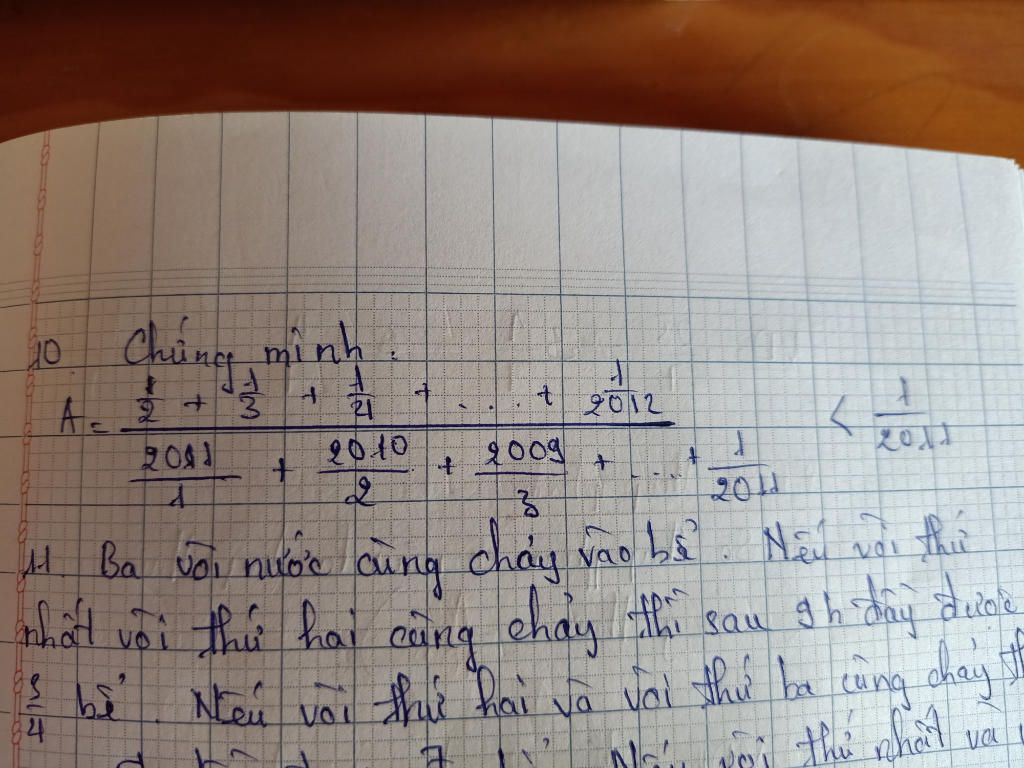 10. Chứng minh:
A = \frac{\frac{1}{2} + \frac{1}{3} + \frac{1}{4} + ... + \frac{1}{2012}}{\frac{2011}{1} + \frac{2010}{2} + \frac{2009}{3} + ... + \frac{1}{2011}} < \frac{1}{2011}
11. Ba vòi nước cùng chảy vào bể. Nếu vòi thứ
nhất vòi thứ hai cùng chảy thì sau 9h đầy được
\frac{3}{4} bể. Nếu vòi thứ hai và vòi thứ ba cùng chảy
Nếu vòi thứ nhất và